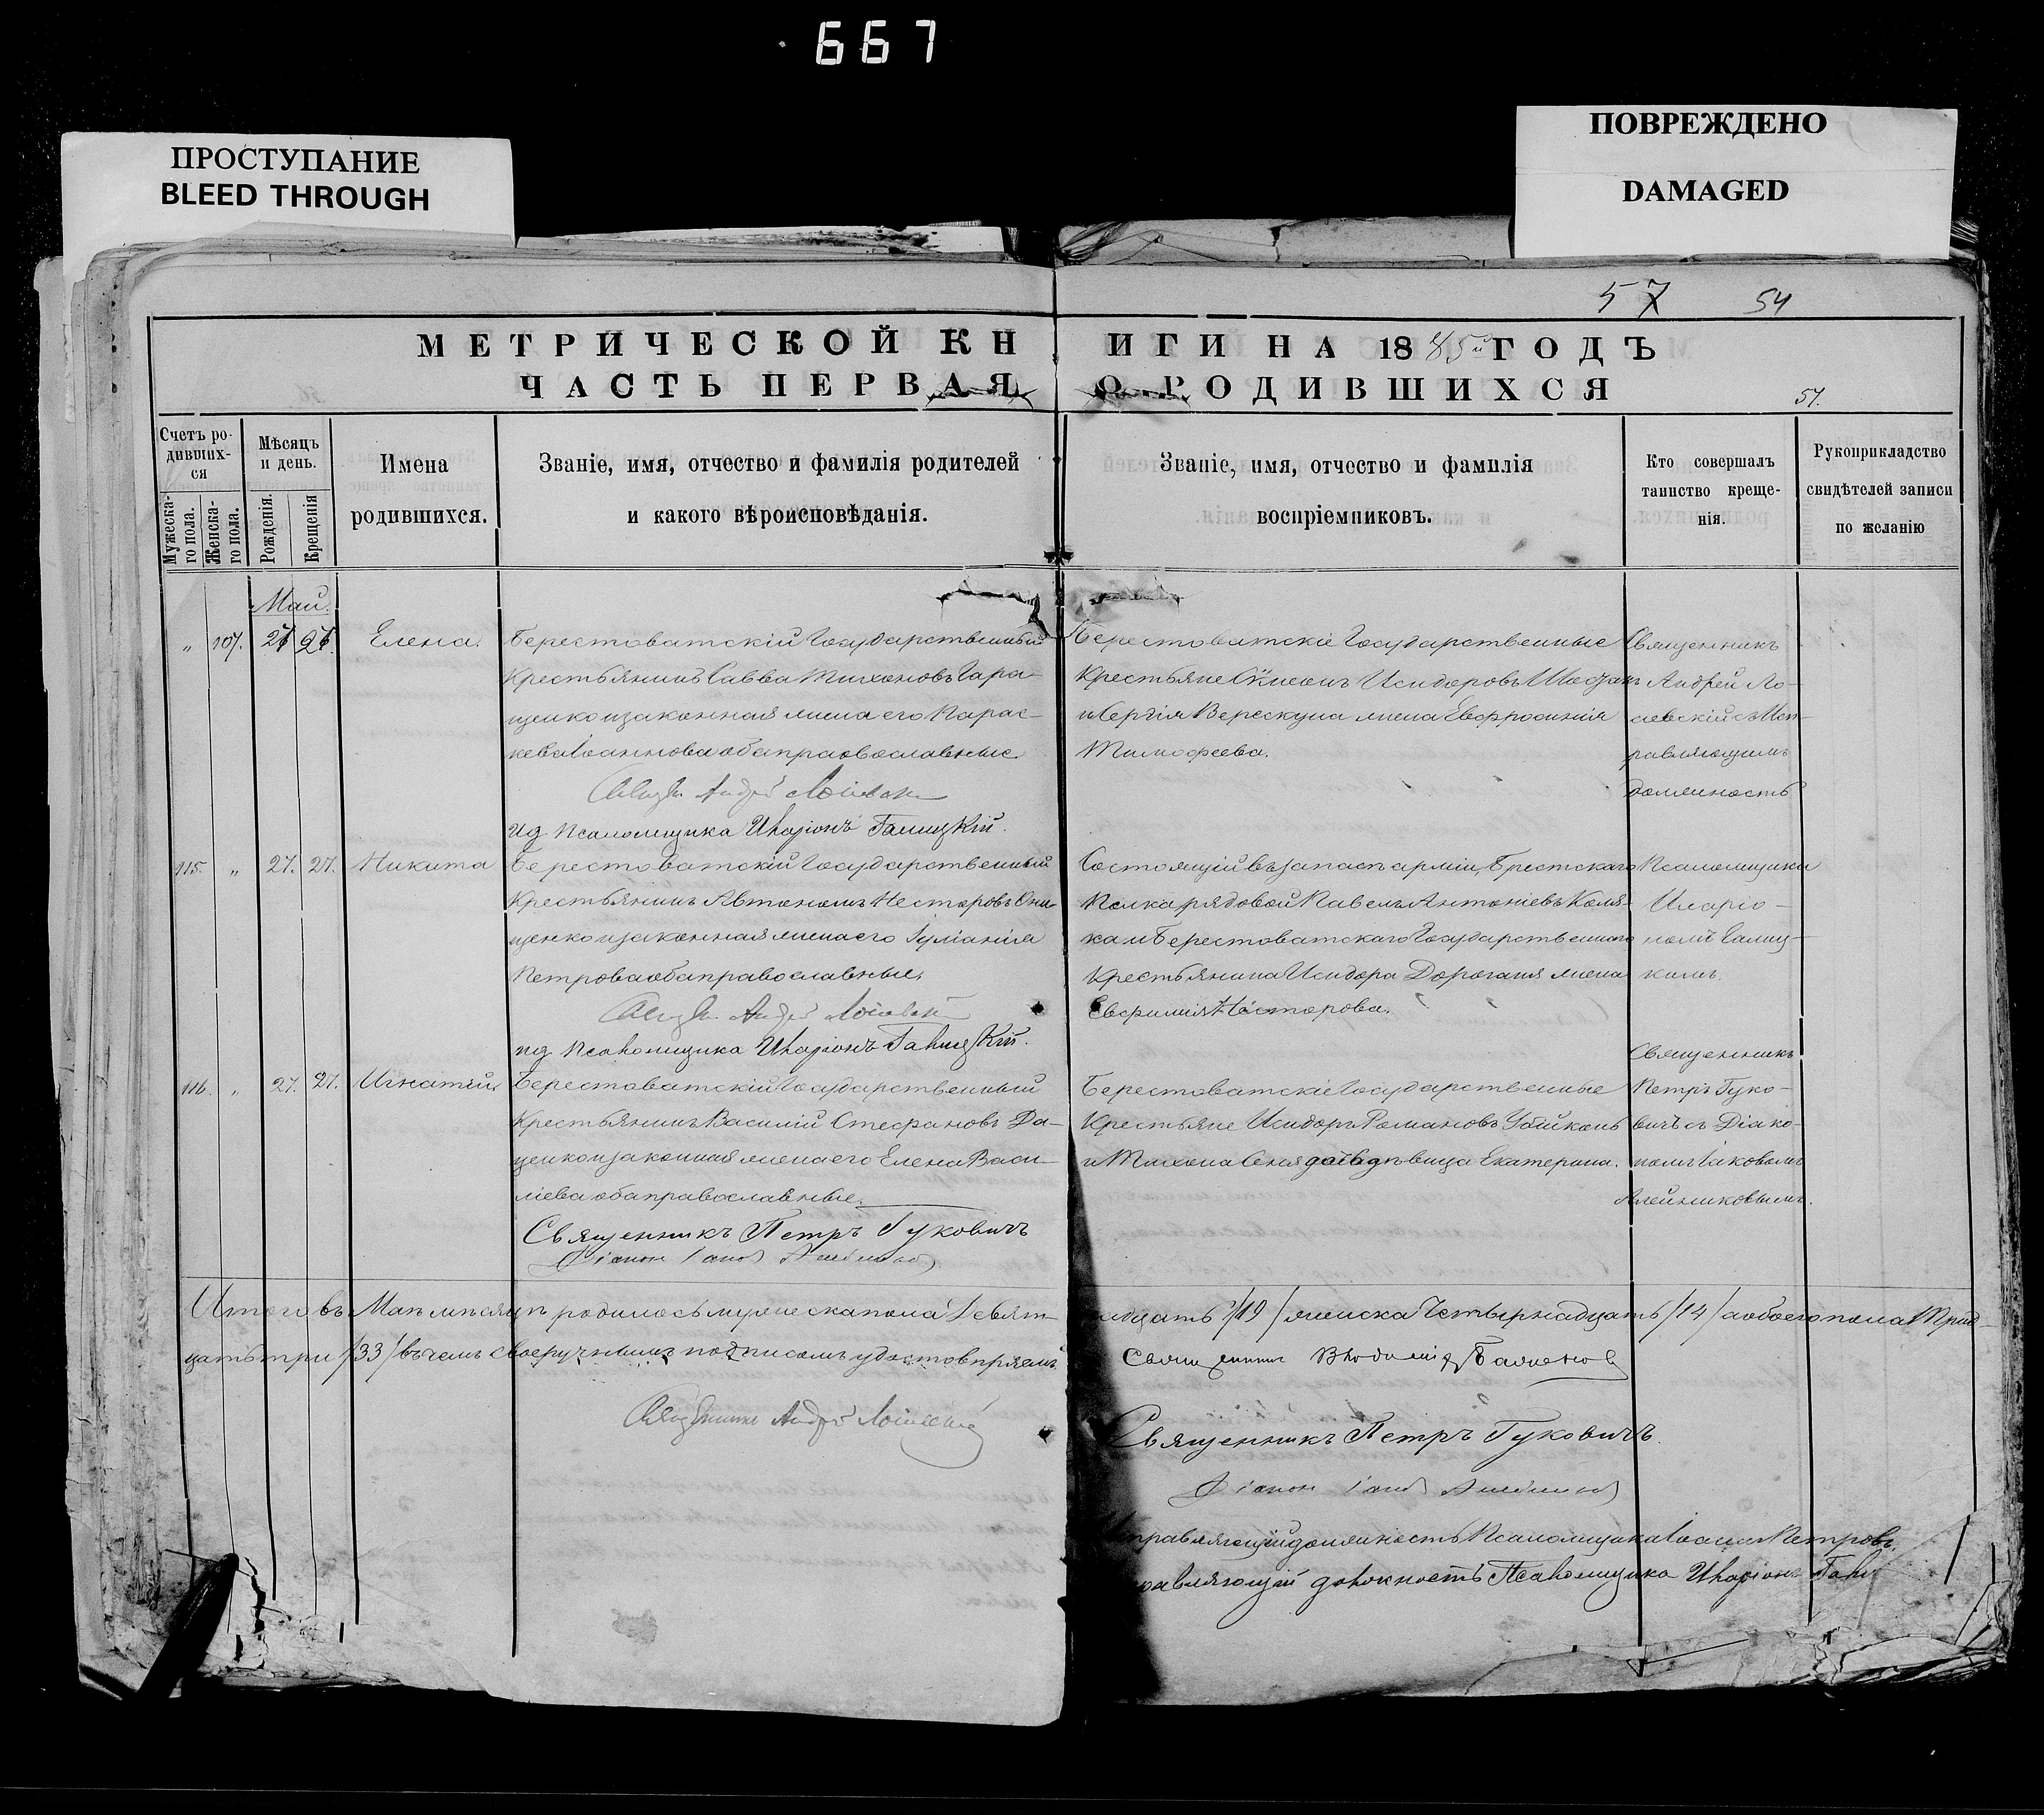 667
ПРОСТУПАНИЕ
BLEED THROUGH
ПОВРЕЖДЕНО
DAMAGED
57 54
МЕТРИЧЕСКОЙ КНИГИ НА 1885й ГОДЪ
ЧАСТЬ ПЕРВАЯ О РОДИВШИХСЯ
57.
Счетъ ро-
дивших-
ся
Мужеска-
го пола.
Женска-
го пола.
Мѣсяцъ
и день.
Рожденія.
Крещенія
Имена
родившихся.
Званіе, имя, отчество и фамилія родителей
и какого вѣроисповѣданія.
Званіе, имя, отчество и фамилія
воспріемниковъ.
Кто совершалъ
таинство креще-
нія.
Рукоприкладство
свидѣтелей записи
по желанію
Май.
„ 107. Елена.
Берестоватскій Государственный
Крестьянинъ Савва Тихоновъ Гара-
щенко и законная жена его Парас-
кева Іоаннова оба православные.
Андрей
ид Псаломщика Иларіонъ Галицкій.
Берестоватскіе Государственные
Крестьяне Сѵмеонъ Исидоровъ
и Сергія Верескуна жена Евфросинія
Тимофеева.
Священникъ
Андрей Ло-
евскій съ Исп-
равляющимъ
должность
115. „ 27. 27. Никита
Берестоватскій Государственный
Крестьянинъ Автономъ Несторовъ Они-
щенко и законная жена его Іуліанія
Петрова оба православные.
Андрей
ид Псаломщика Иларіонъ Галицкій.
Состоящій въ запасѣ арміи, Брестскаго
Полка рядовой Павелъ Антоніевъ Коля-
ка и Берестоватскаго Государственнаго
Крестьянина Исидора Дороганя жена
Евфимія Несторова.
Псаломщика
Иларіо-
номъ Галиц-
кимъ.
116. „ 27. 27. Игнатій
Берестоватскій Государственный
Крестьянинъ Василій Стефановъ Да-
ценко и законная жена его Елена Васи-
ліева оба православные.
Священникъ Петръ Гуковичъ
Діаконъ
Берестоватскіе Государственные
Крестьяне Исидоръ Романовъ Убійконь
и Тихона дѣвица Екатерина.
Священникъ
Петръ Гуко-
вичъ съ Діако-
номъ Іаковомъ
Алейниковымъ.
Итого въ Маѣ мѣсяцѣ родилось мужеска пола Девят-
надцать /19/ женска Четырнадцать /14/ а обоего пола Трид-
цать три /33/ въ чемъ своеручнымъ подписомъ удостовѣряемъ
Священникъ Андрей
Священникъ Владимір
Священникъ Петръ Гуковичъ.
Діаконъ
Исправляющій должность Псаломщика Іоаннъ Петровъ.
равляющій должность Псаломщика Иларіонъ Гали